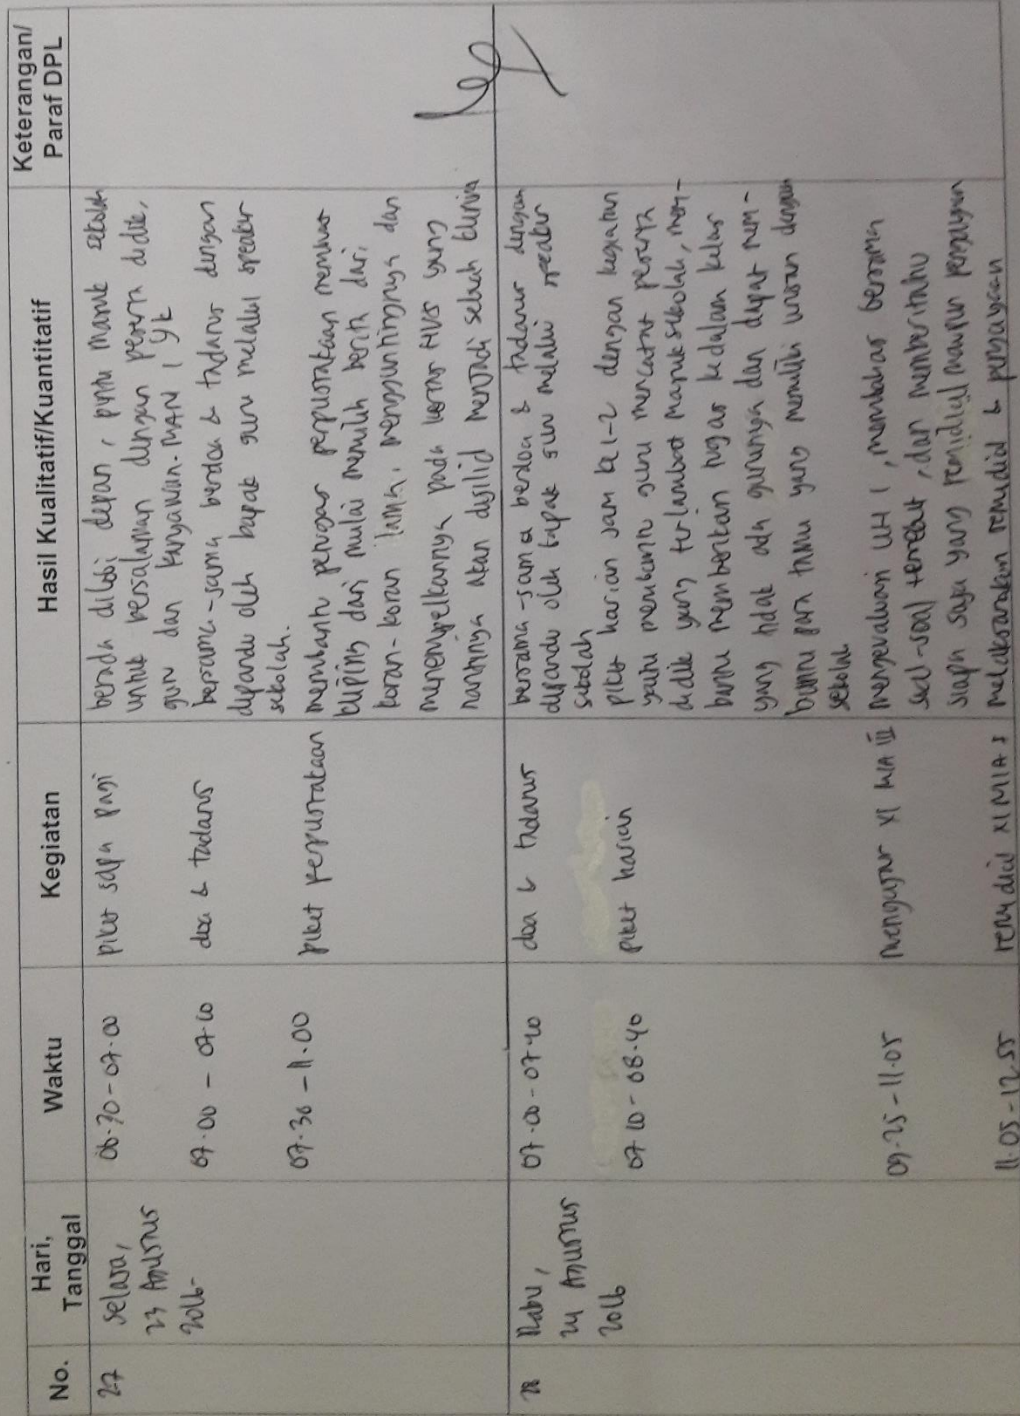 No. Hari, Tanggal Waktu Kegiatan Hasil Kualitatif/Kuantitatif Keterangan/ Paraf DPL
27
Selasa,
23 Agustus
2016
06.30 - 07.00
piket sapa pagi
berada dilobi depan, pintu masuk sekolah
untuk bersalaman dengan peserta didik,
guru dan karyawan MAN 1 YK
07.00 - 07.10
doa & tadarus
bersama-sama berdoa & tadarus dengan
dipandu oleh bapak guru melalui speaker
sekolah.
07.30 - 11.00
piket perpustakaan
membantu petugas perpustakaan membuat
kliping dari mulai memilih berita dari
koran-koran lama, mengguntingnya dan
menempelkannya pada kertas HVS yang
nantinya akan dijilid menjadi sebuah kliping
28
Rabu,
24 Agustus
2016
07.00 - 07.10
doa & tadarus
bersama-sama berdoa & tadarus dengan
dipandu oleh bapak guru melalui speaker
sekolah
07.10 - 08.40
piket harian
piket harian jam ke 1-2 dengan kegiatan
yaitu membantu guru mencatat peserta
didik yang terlambat masuk sekolah, mem-
bantu memberikan tugas kedalam kelas
yang tidak ada gurunya dan dapat mem-
bantu para tamu yang memiliki urusan dengan
sekolah
09.25 - 11.05
mengajar XI MIA III
mengevaluasi UH 1, membahas bersama
soal-soal tersebut, dan memberitahu
siapa saja yang remidial maupun pengayaan
11.05 - 12.55
remidial XI MIA 3
melaksanakan remidial & pengayaan